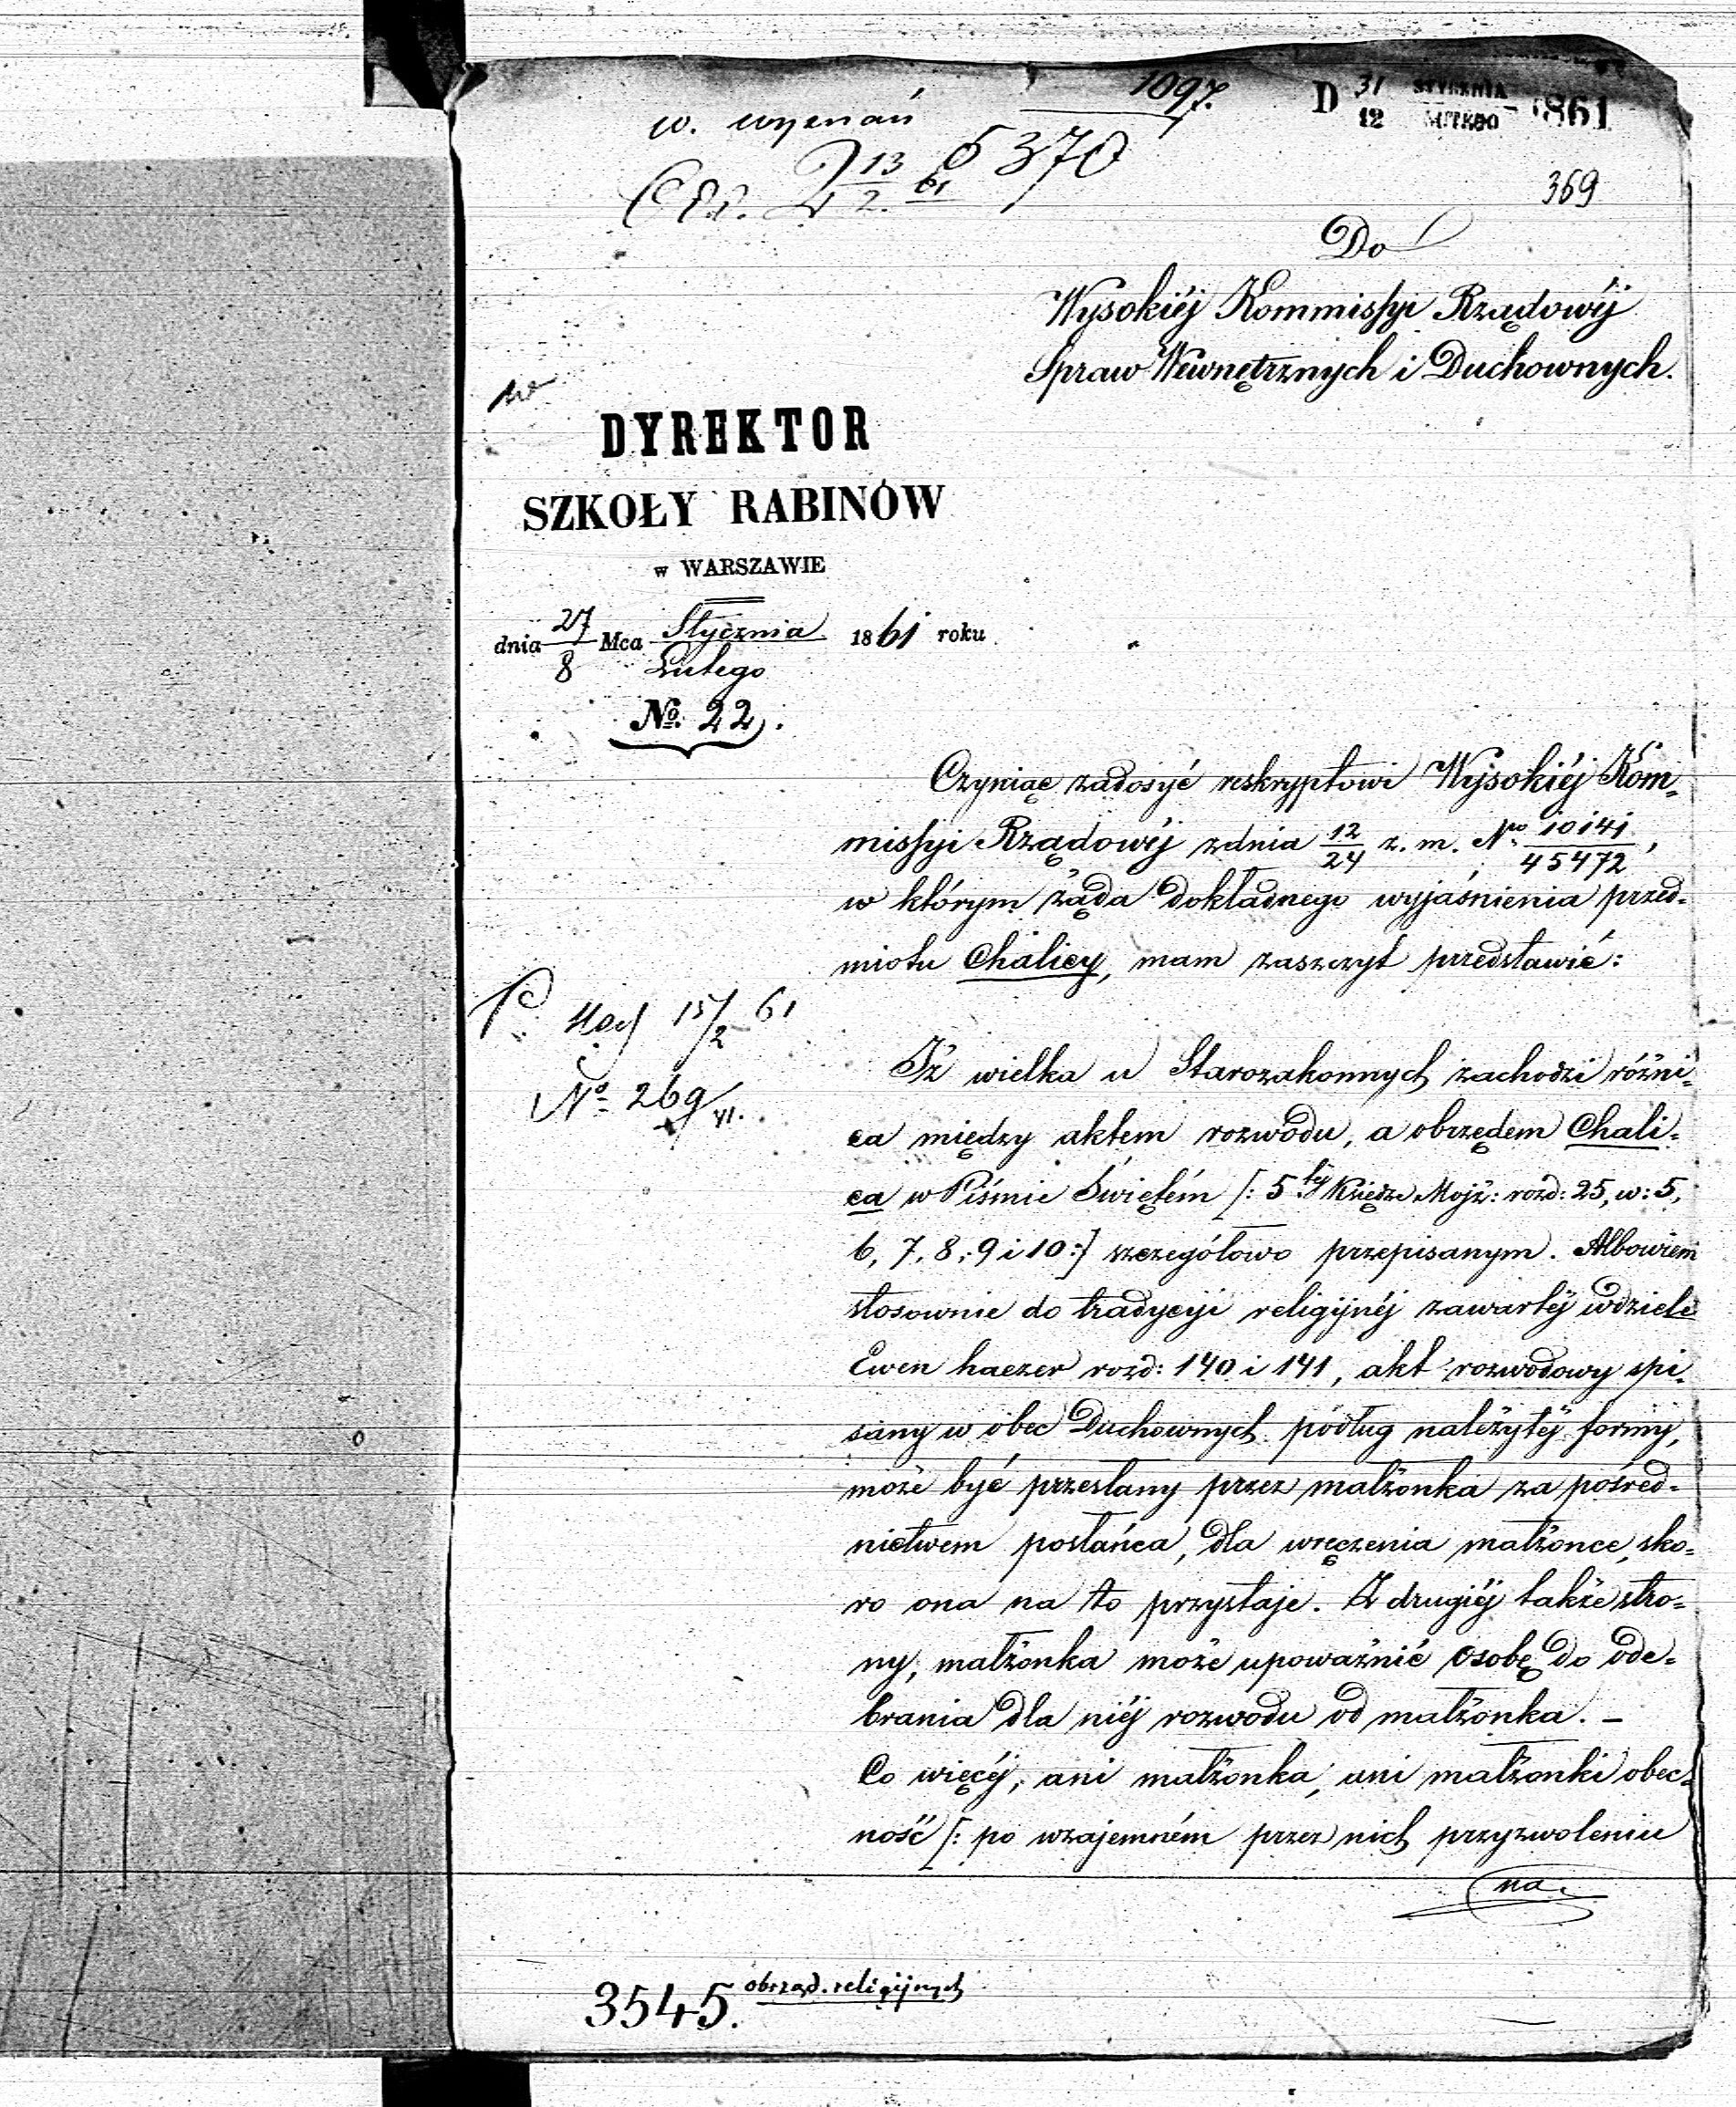 1097.
D 31/12 STYCZNIA/LUTEGO 1861
w. wyznań
5370
13/2. 61
369
Do
Wysokiéj Kommissyi Rządowéj
Spraw Wewnętrznych i Duchownych.
DYREKTOR
SZKOŁY RABINÓW
w WARSZAWIE
dnia 27/8 Mca Stycznia/Lutego 1861 roku
No. 22.
Czyniąc zadosyć reskryptowi Wysokiéj Kom=
missyi Rządowéj z dnia 12/24 z. m. No. 10141/45472,
w którym żąda dokładnego wyjaśnienia przed=
miotu Chalicy, mam zaszczyt przedstawić:
15/2 61
No 269/VI.
Iż wielka u Starozakonnych zachodzi różni=
ca między aktem rozwodu, a obrzędem Chali=
ca w Piśmie Świętém [: 5téj Księdze Mojż: rozd: 25, w: 5,
6, 7, 8, 9 i 10:] szczegółowo przepisanym. Albowiem
stosownie do tradycyi religijnéj zawartéj w dziele
Ewen haezer rozd: 140 i 141, akt rozwodowy spi=
sany w obec Duchownych podług należytéj formy,
może być przesłany przez małżonka za pośred=
nictwem posłańca, dla wręczenia małżonce, sko=
ro ona na to przystaje. Z drugiéj także stro=
ny, małżonka może upoważnić osobę do ode=
brania dla niéj rozwodu od małżonka. –
Co więcéj, ani małżonka, ani małżonki obec=
ność [: po wzajemném przez nich przyzwoleniu
na
3545. obrząd. religijnych